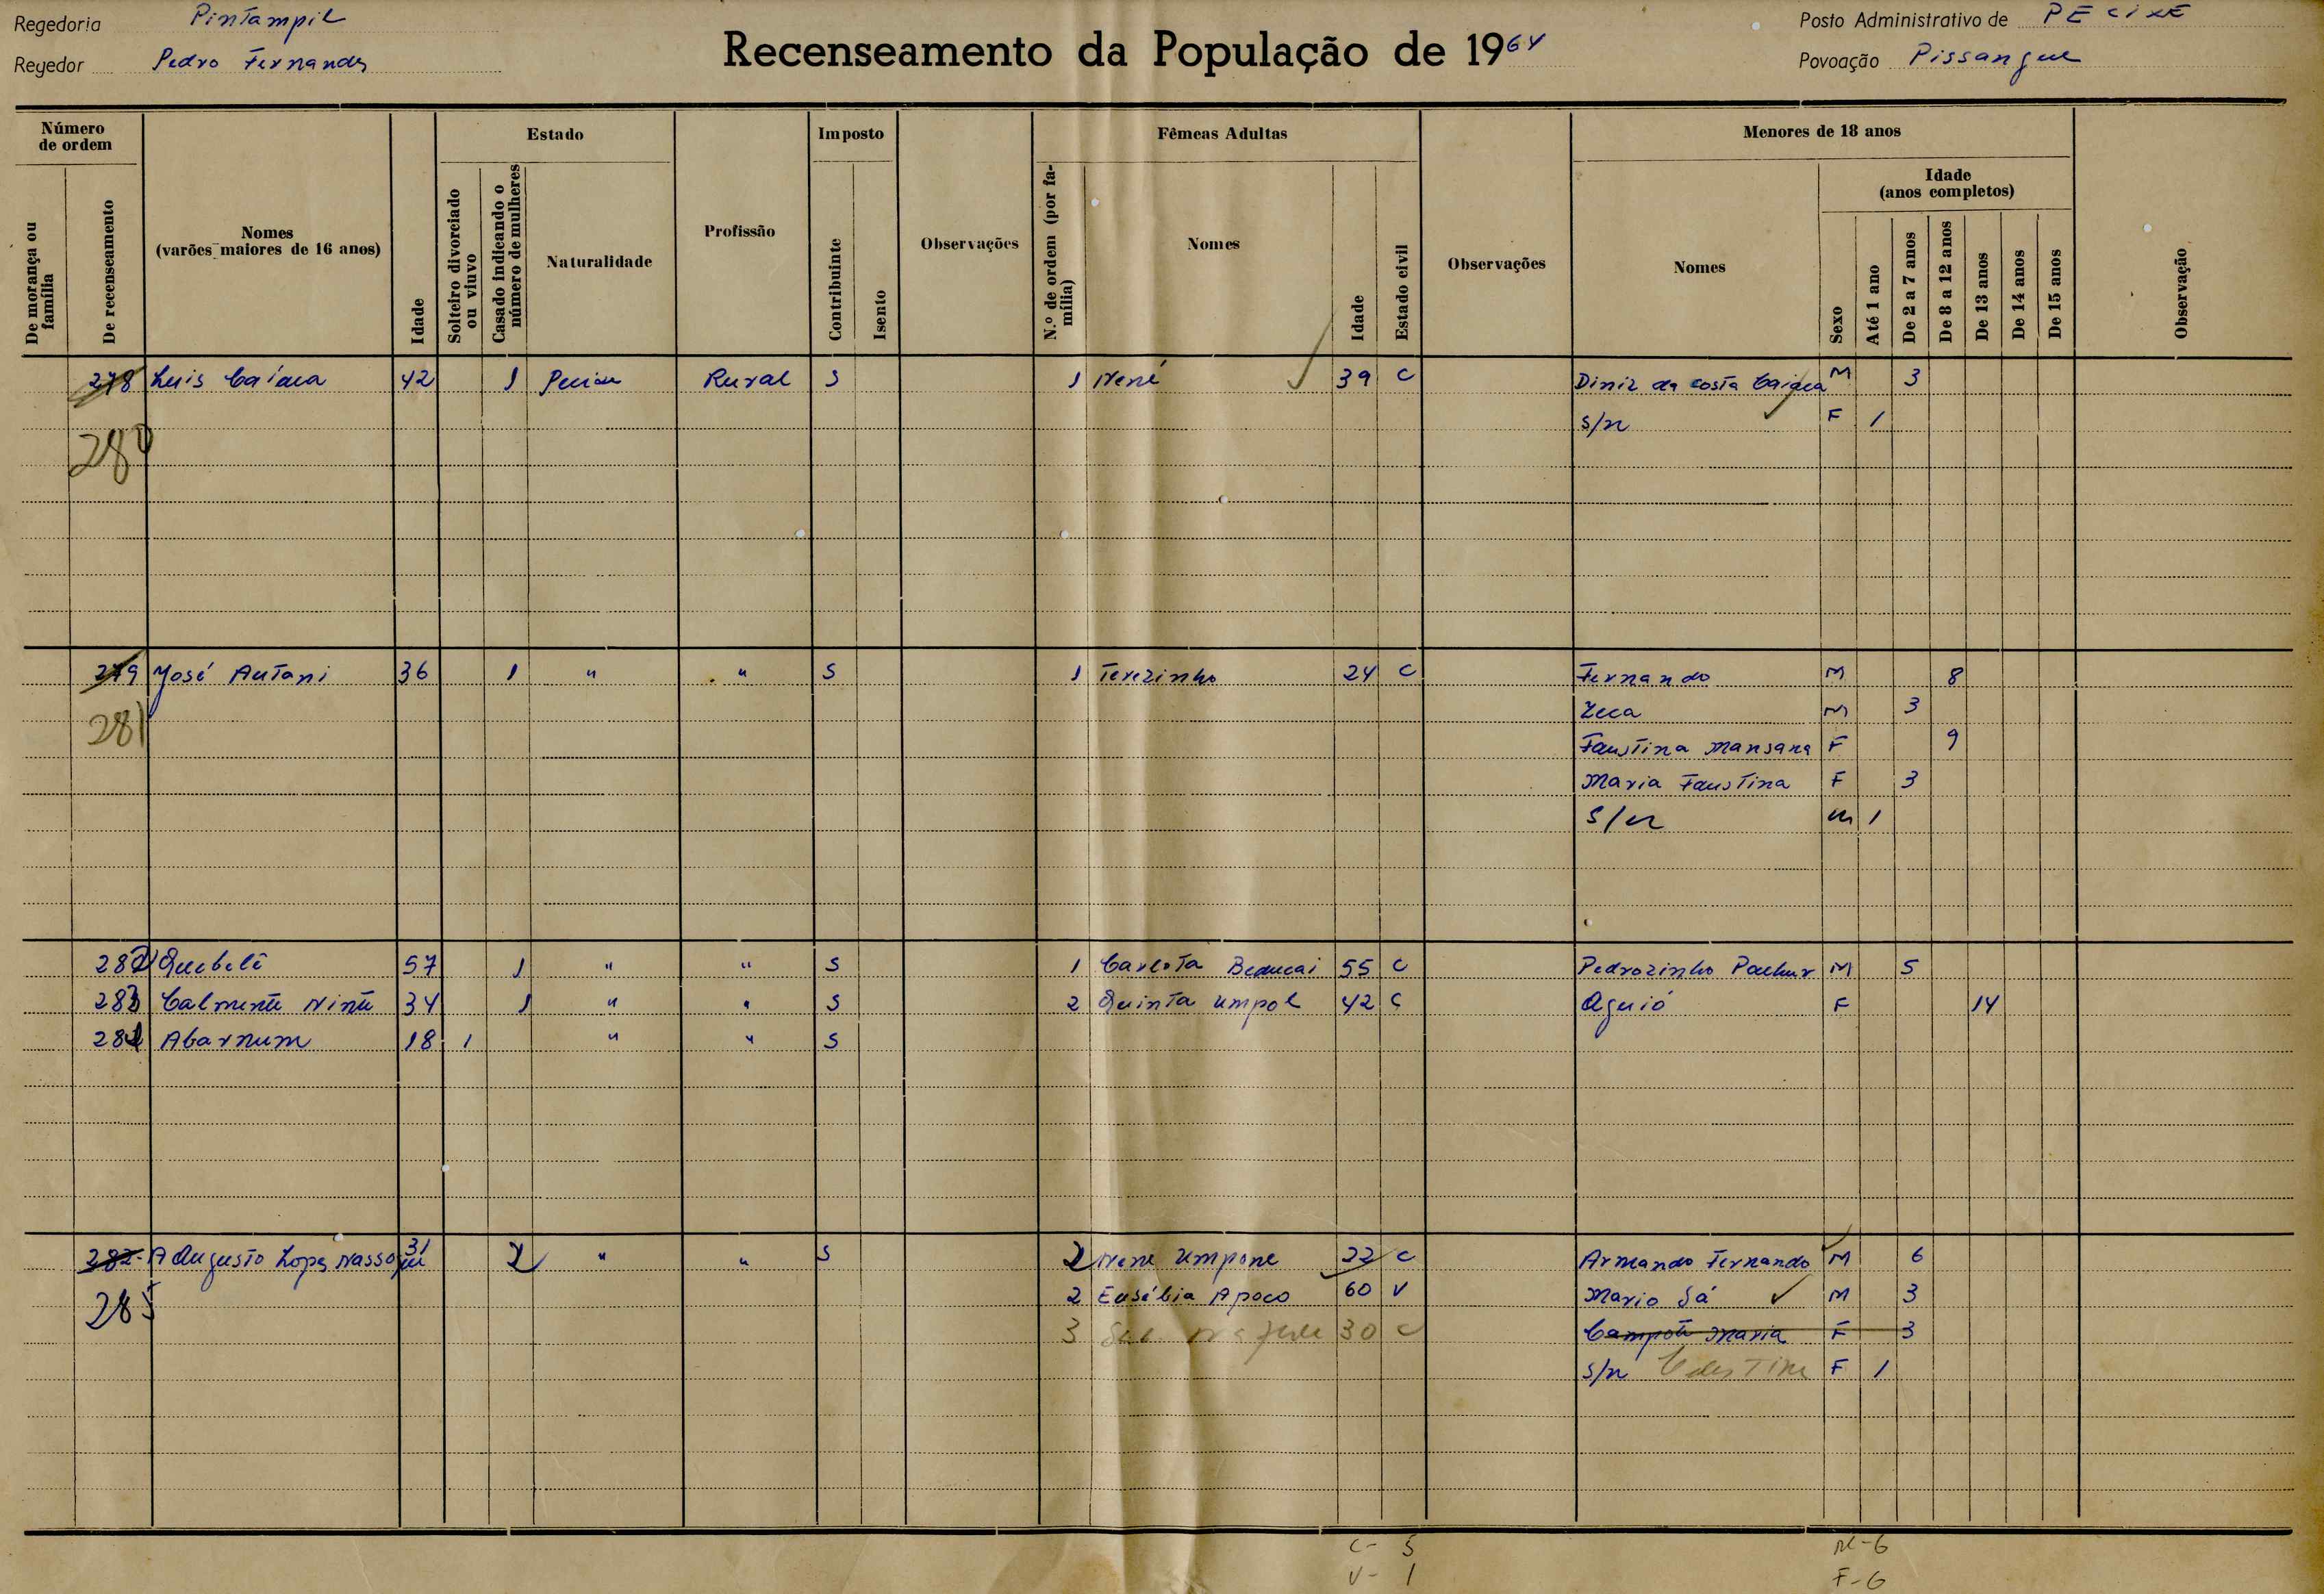 Regedoria Pintampil
Regedor Pedro Fernandes
Recenseamento da População de 1964
Posto Administrativo de PECIXE
Povoação Pissangue
Número de ordem
De morança ou família
De recenseamento
Nomes (varões maiores de 16 anos)
Idade
Estado
Solteiro divorciado ou viuvo
Casado indicando o número de mulheres
Naturalidade
Profissão
Imposto
Contribuinte
Isento
Observações
Fêmeas Adultas
N.º de ordem (por família)
Nomes
Idade
Estado civil
Observações
Menores de 18 anos
Nomes
Sexo
Idade (anos completos)
Até 1 ano
De 2 a 7 anos
De 8 a 12 anos
De 13 anos
De 14 anos
De 15 anos
Observação
278 Luis Caiaca 42 1 Pecixe Rural S 1 Nené 39 C Diniz da Costa Caiaca M 3
S/n F 1
280
279 José Autani 36 1 " " S 1 Terezinho 24 C Fernando M 8
281 Zeca M 3
Faustina Mansana F 9
Maria Faustina F 3
S/n M 1
282 Quebelé 57 1 " " S 1 Carlota 55 C Pedrozinho M 5
283 34 1 " " S 2 Quinta Umpol 42 C Aguió F 14
284 Abarnum 18 1 " " S
282 A Augusto Lopes 31 2 " " S 2 Nene Umpone 22 C Armando Fernando M 6
285 2 Eusébia Apoco 60 V Mario Sá M 3
3 30 C Campoté Maria F 3
S/n Celestina F 1
C- 5
V- 1
M-6
F-6